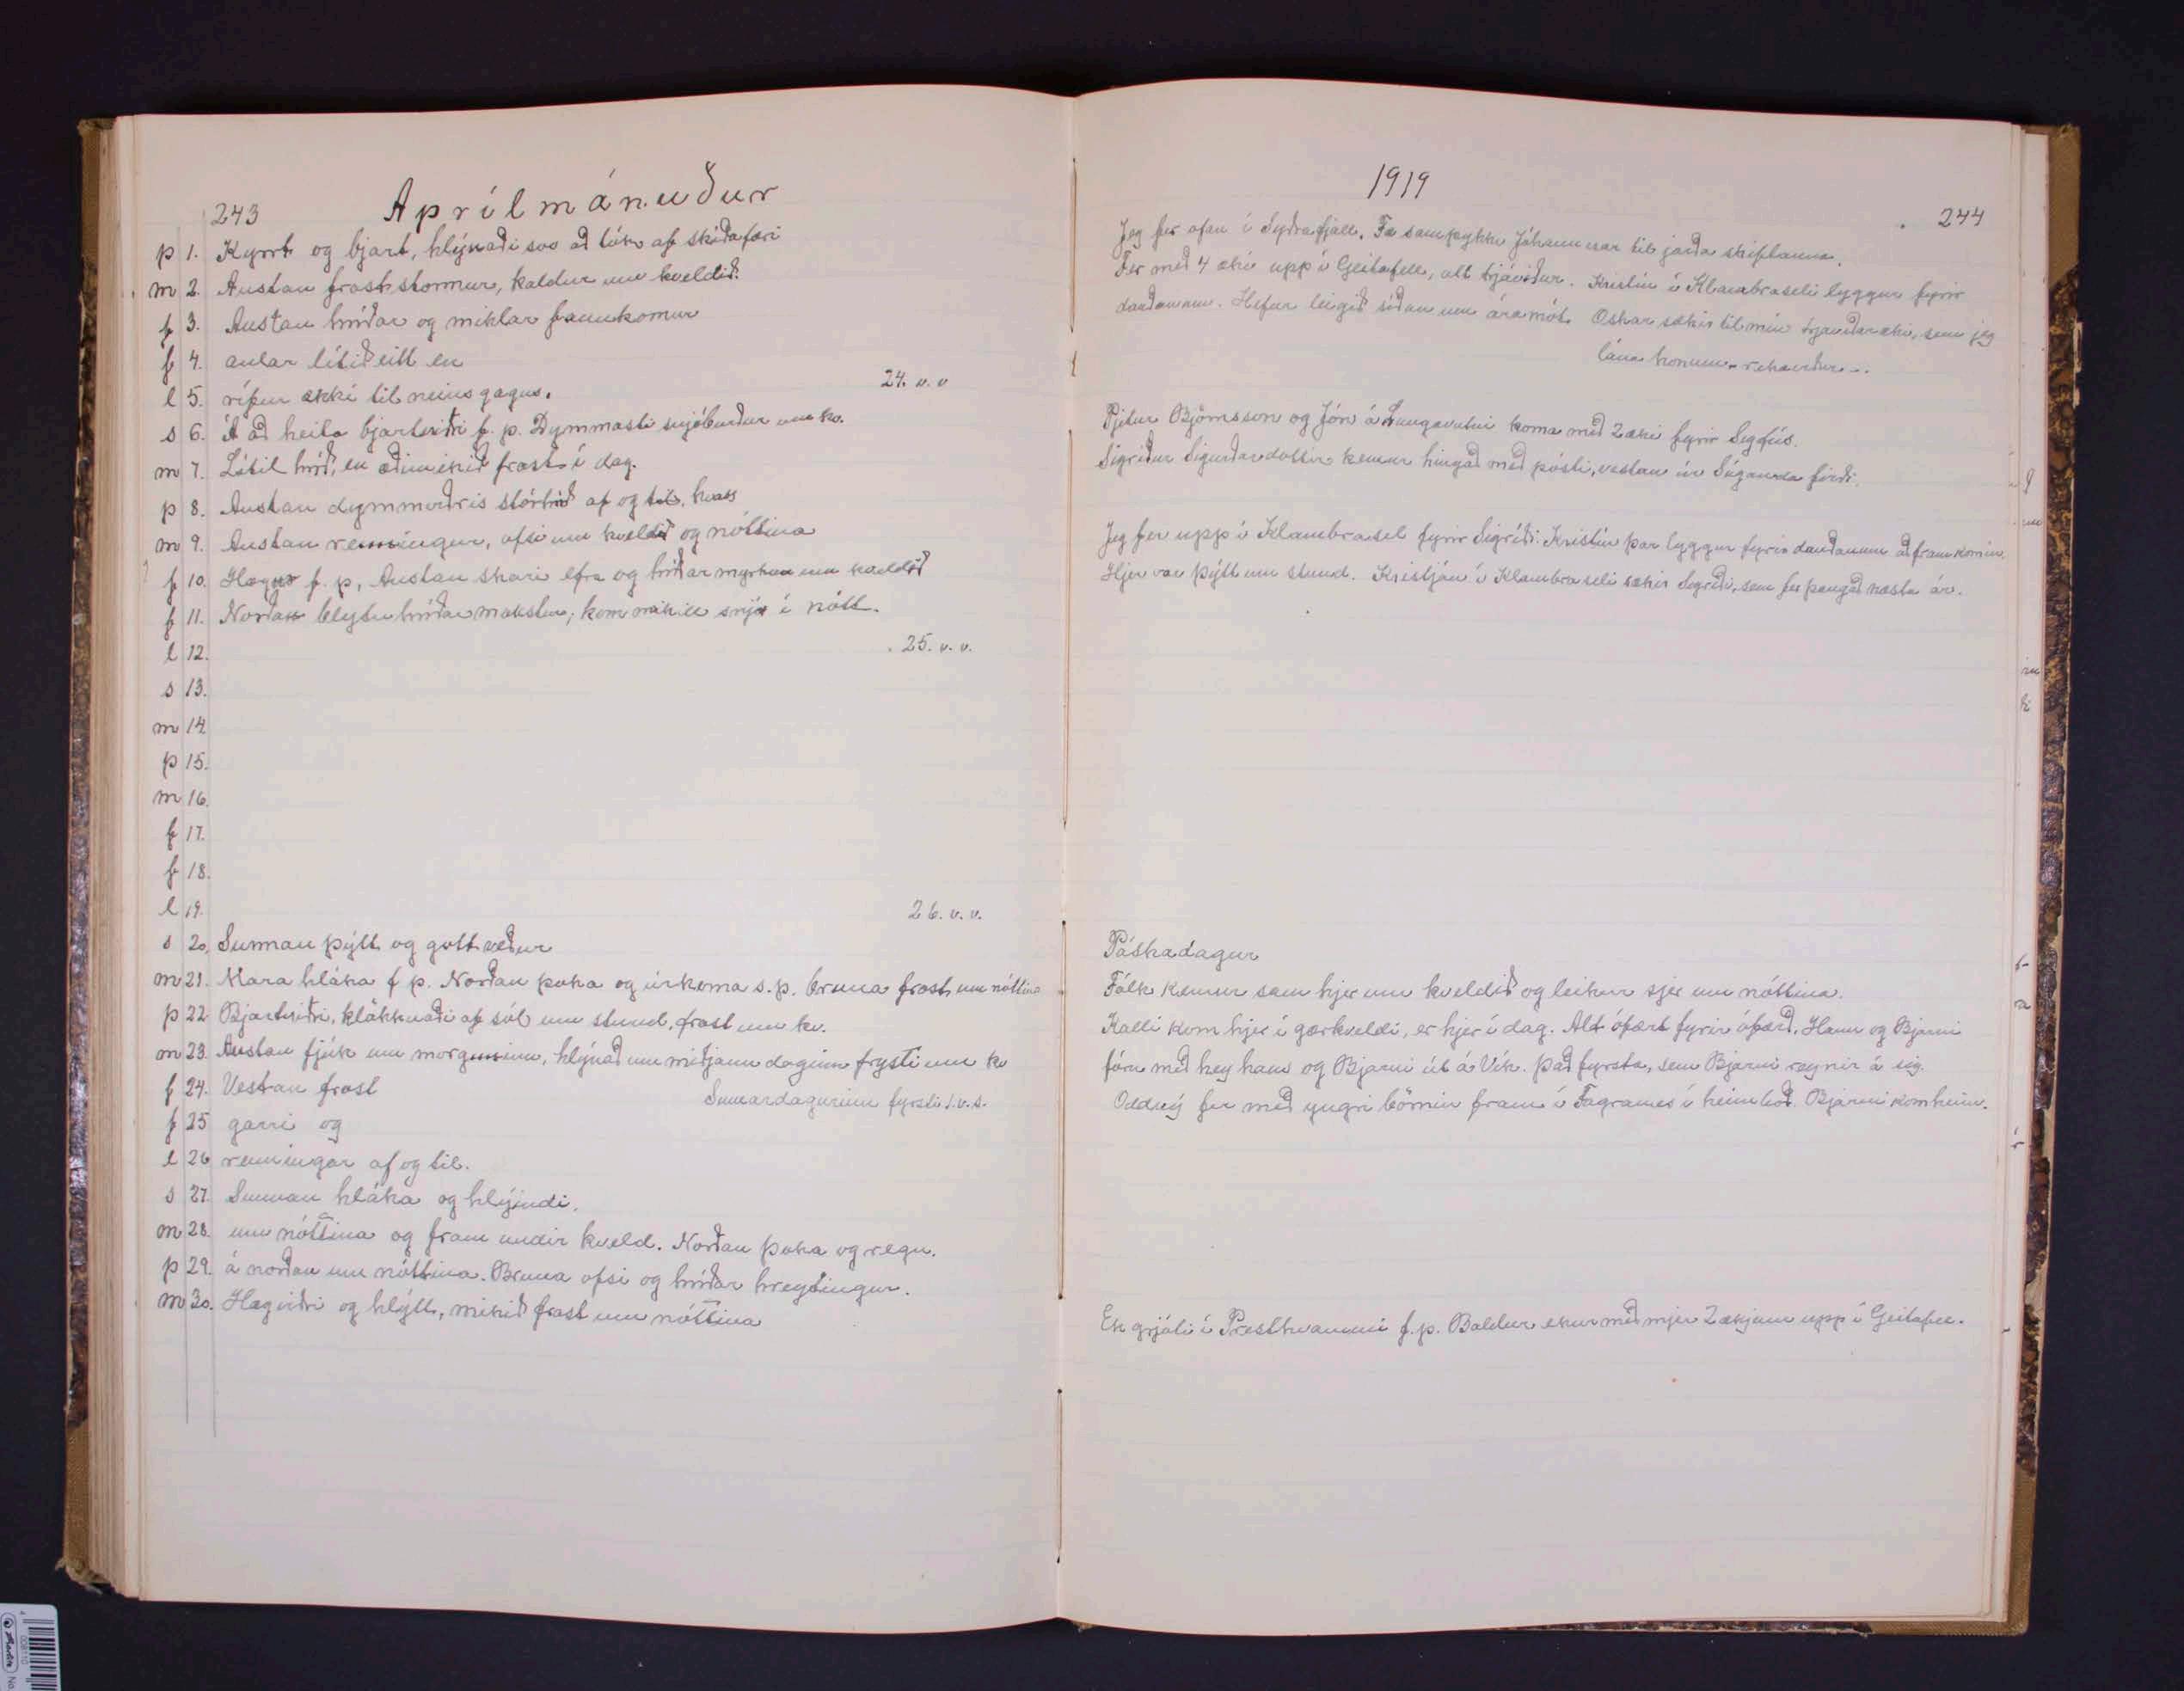 243 Aprílmánuður
þ 1. Kyrrt og bjart, hlýnaði svo að tók af skíðafæri
m 2. Austan froststormur, kaldur um kveldið.
f 3. Austan hríðar og miklar fannkomur
f 4. aular lítið eitt en
l 5. rífur ekki til neins gagns. 24. v. v
s 6. Á að heita bjartviðri f. p. Dymmasti snjóburður um kv.
m 7. Lítil hríð, en æðimikið frost í dag.
þ 8. Austan dymmviðris stórhríð af og til, hvass
m 9. Austan renningur, ofsi um kveldið og nóttina
f 10. Hægur f. p. Austan skari efra og hríðarmyrkur um kveldið
f 11. Norðan bleytuhríðar mokstur, kom mikill snjór í nótt.
l 12. 25. v. v.
s 13.
m 14.
þ 15.
m 16.
f 17.
f 18.
l 19. 26. v. v.
s 20. Sunnan þýtt og gott veður
m 21. Mara hláka f p. Norðan þoka og úrkoma s. p. bruna frost um nóttina
þ 22. Bjartviðri, klökknaði af sól um stund, frost um kv.
m 23. Austan fjúk um morguninn, hlýnað um miðjann daginn frysti um kv
f 24. Vestan frost Sumardagurinn fyrsti 1. v. s.
f 25 garri og
l 26 renningar af og til.
s 27. Sunnan hláka og hlýindi.
m 28. um nóttina og fram undir kveld. Norðan þoka og regn.
þ 29. á norðan um nóttina. Bruna ofsi og hríðar hreytingur.
m 30. Hægviðri og hlýtt, mikið frost um nóttina
1919
244
Jeg fer ofan í Syðrafjall. Fæ samþykki Jóhannesar til jarða skiptanna.
Fer með 4 æki upp í Geitafell, alt trjáviður. Kristín í Klambraseli lyggur fyrir
dauðanum. Hefur leigið síðan um áramót. Oskar sækir til mín trjáviðaræki, sem jeg
lána honum
Pjetur Björnsson og Jón á Laugavatni koma með 2 æki fyrir Sigfús.
Sigríður Sigurðardóttir kemur hingað með pósti, vestan úr Súganda firði.
Jeg fer upp í Klambrasel fyrir Sigríði. Kristín þar lyggur fyrir dauðanum að framkomin.
Hjer var þýtt um stund. Kristján í Klambraseli sækir Sigríði, sem fer þangað næsta ár.
Páskadagur
Fólk kemur sam hjer um kveldið og leikur sjer um nóttina.
Kalli kom hjer í gærkveldi, er hjer í dag. Alt ófært fyrir ófærð. Hann og Bjarni
fóru með hey hans og Bjarni út á Vík. Það fyrsta, sem Bjarni reynir á sig.
Oddný fer með yngri börnin fram í Fagranes í heimboð. Bjarni kom heim.
Ek grjóti í Presthvammi f. p. Baldur ekur með mjer 2 ækjum upp í Geitafell.